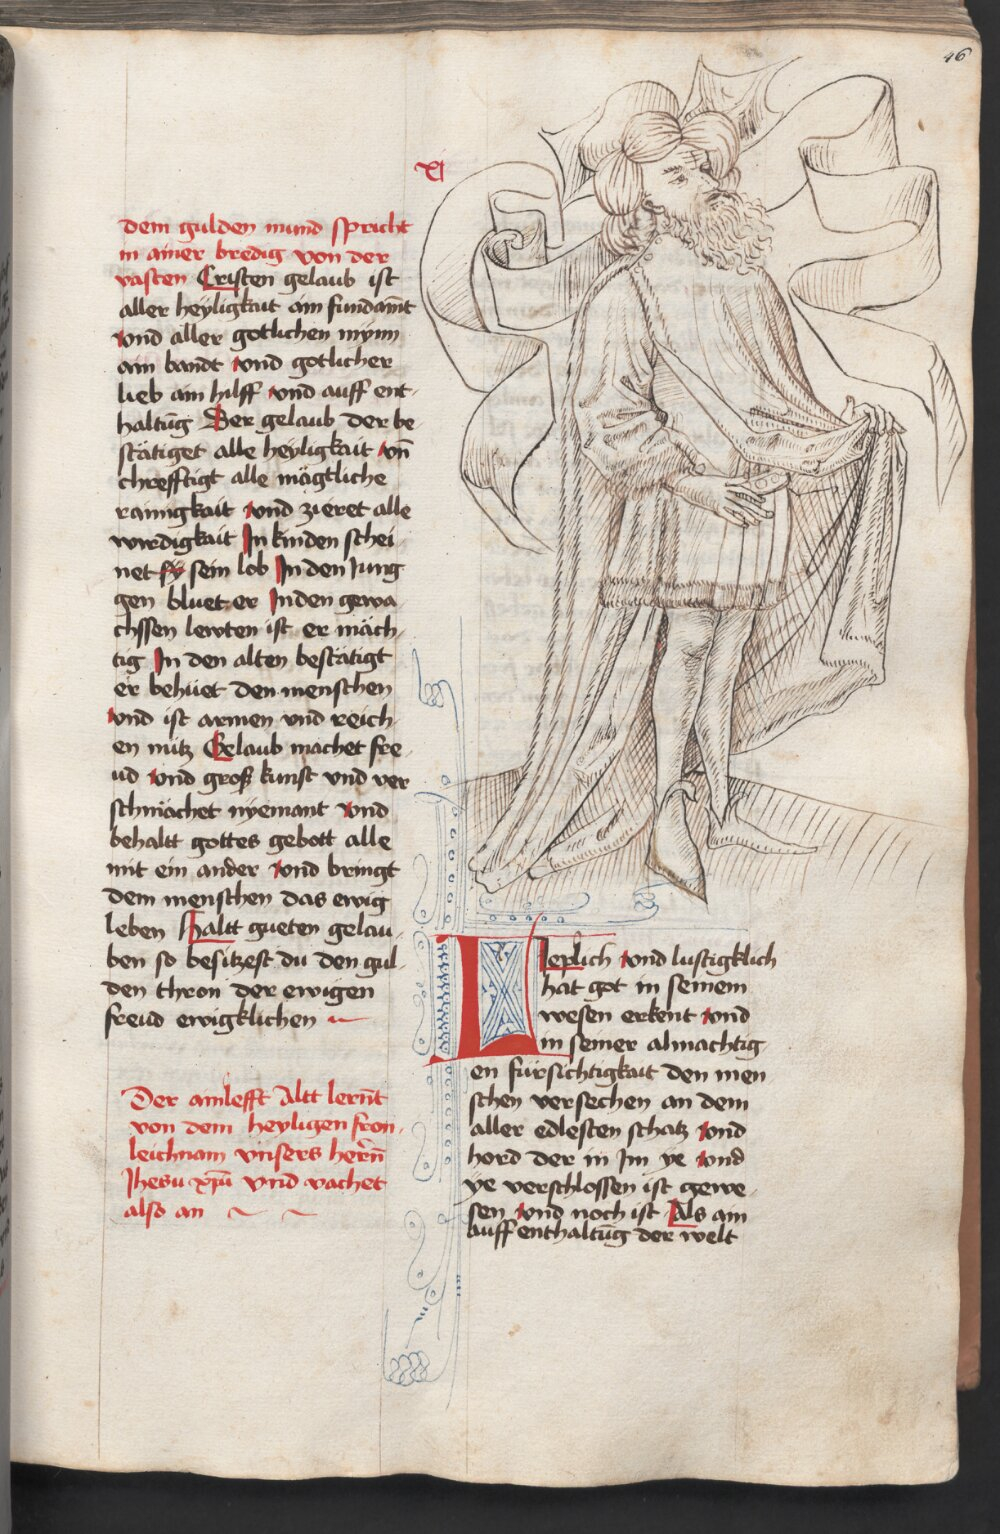 46
XI
dem gulden mund spricht
in ainer bredig von der
vasten Cristen gelaub ist
aller heyligkait ain fundamt̄
vnd aller gotlichen mynn
ain bandt vnd gotlicher
lieb ain hilff vnd auff ent-
haltūg Der gelaub der be-
stätiget alle heyligkait vn̄
chrefftigt alle mägtliche
rainigkait vnd zieret alle
wirdigkait In kinden schei
net sein lob In den Jung
gen bluet er In den gewa
chssen lewten ist er mäch-
tig In den alten bestätigt
er behüet den menschen
vnd ist armen vnd reich-
en nütz Gelaub machet fre-
ud vnd groß kunst vnd ver
schmächet nyemant vnd
behaltt gottes gebott alle
mit ein ander vnd bringt
dem menschen das ewig
leben Haltt gueten gelau-
ben so besitzest du den gul-
den thron der ewigen
freud ewigklichen
Der ainlefft Altt lernt̄
von dem heyligen fron-
leichnam vnsers herrn̄
Jhesu xp̄ī vnd vachet
also an
Lieplich vnd lustigklich
hat got in seinem
wesen erkent vnd
in seiner almachtig
en fürsichtigkait den men
schen versechen an dem
aller edlesten schatz vnd
hord der in Im ye vnd
ye verschlossen ist gewe-
sen vnd noch ist Als ain
auffenthaltūg der welt